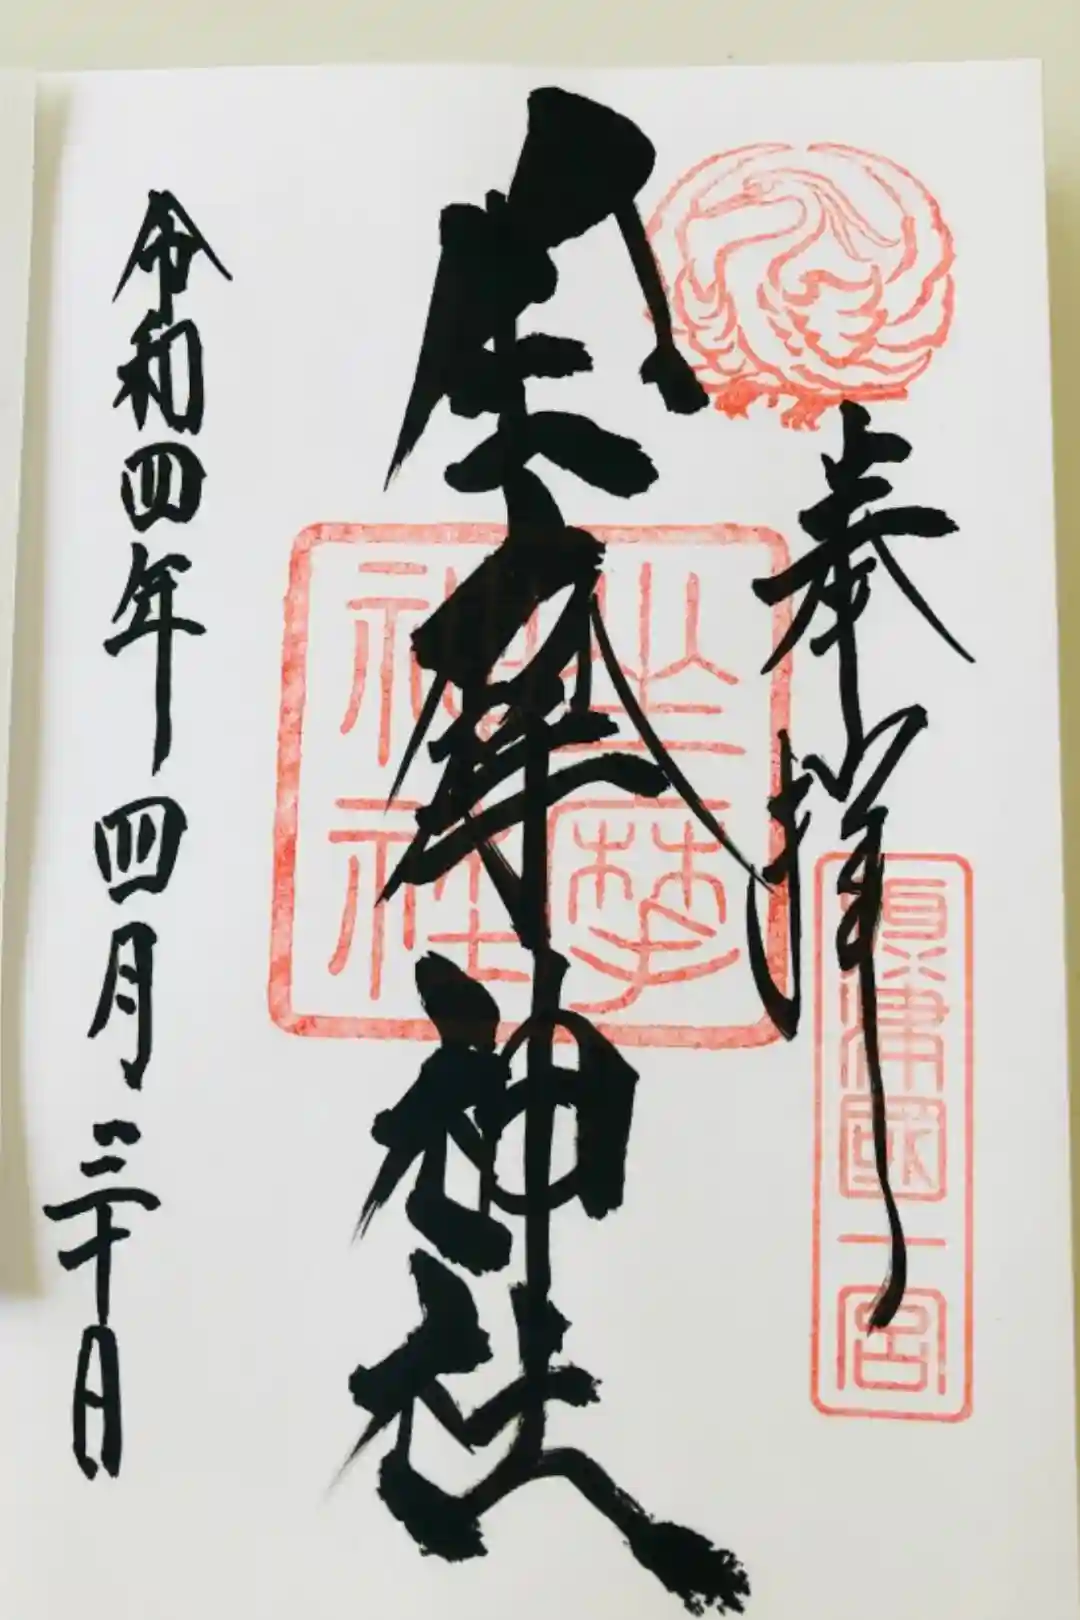 奉拝
攝津國一宮
坐摩神社
坐摩神社
令和四年四月三十日